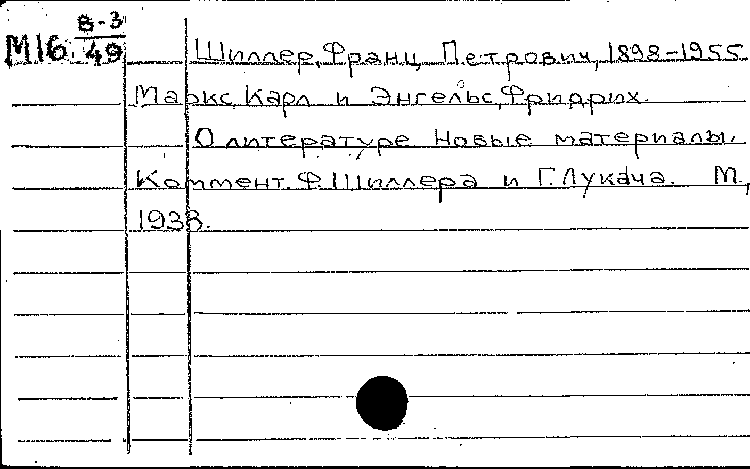 М16. 8-3/49
Шиллер, Франц Петрович, 1898-1955
Маркс, Карл и Энгельс, Фридрих.
О литературе Новые материалы.
Коммент. Ф. Шиллера и Г. Лукача. М.,
1933.